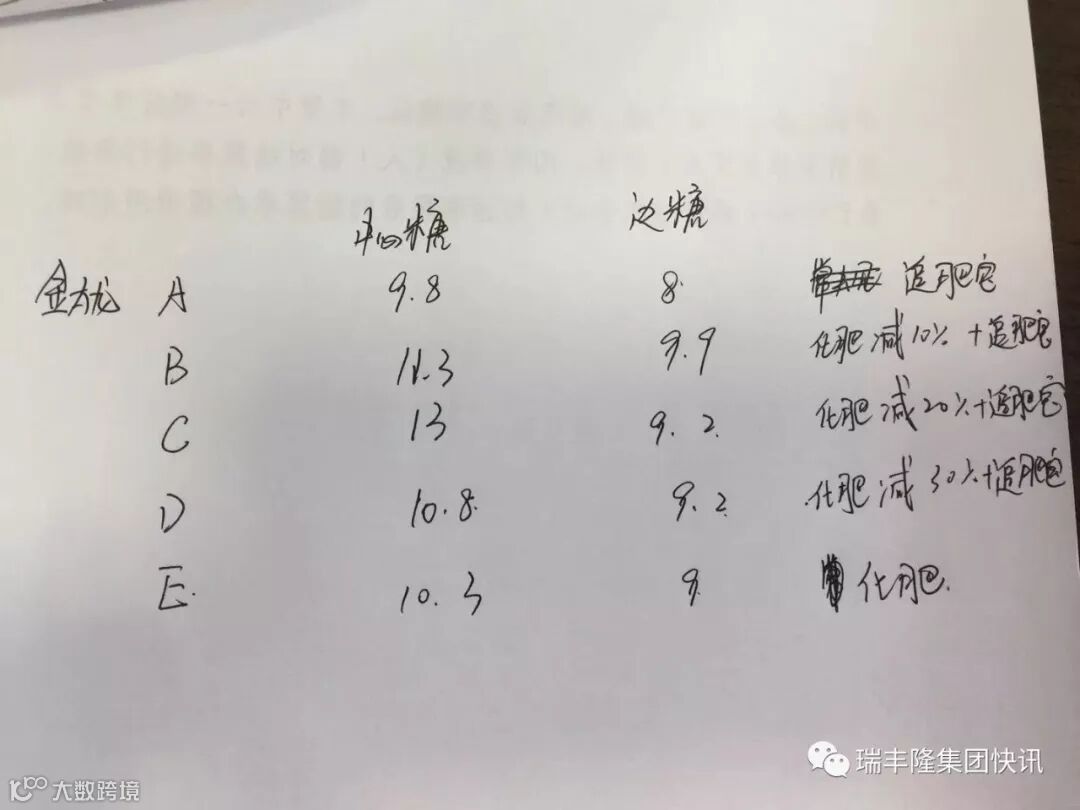 中心糖 边糖
金龙 A 9.8 8 追肥宝
B 11.3 9.9 化肥减10%+追肥宝
C 13 9.2 化肥减20%+追肥宝
D 10.8 9.2 化肥减30%+追肥宝
E. 10.3 9 化肥.
瑞丰隆集团快讯
大数跨境